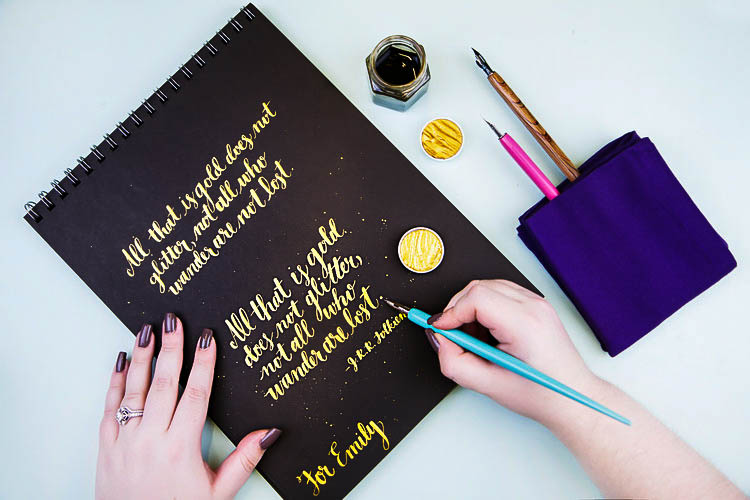 All that is gold does not
glitter, not all who
wander are not lost.
All that is gold
does not glitter,
not all who
wander are lost.
-J.R.R. Tolkien
For Emily